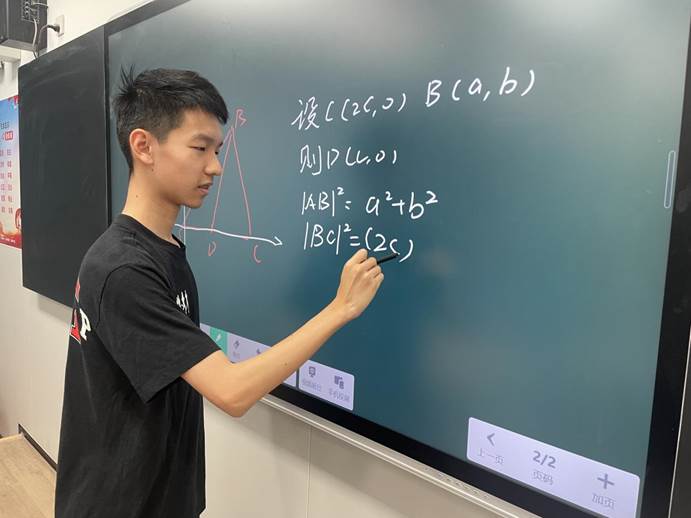 设C(2C,0) B(a,b)
则D(C,0)
|AB|²=a²+b²
|BC|²=(2C)
B
D C
上一页
2/2
页码
加页